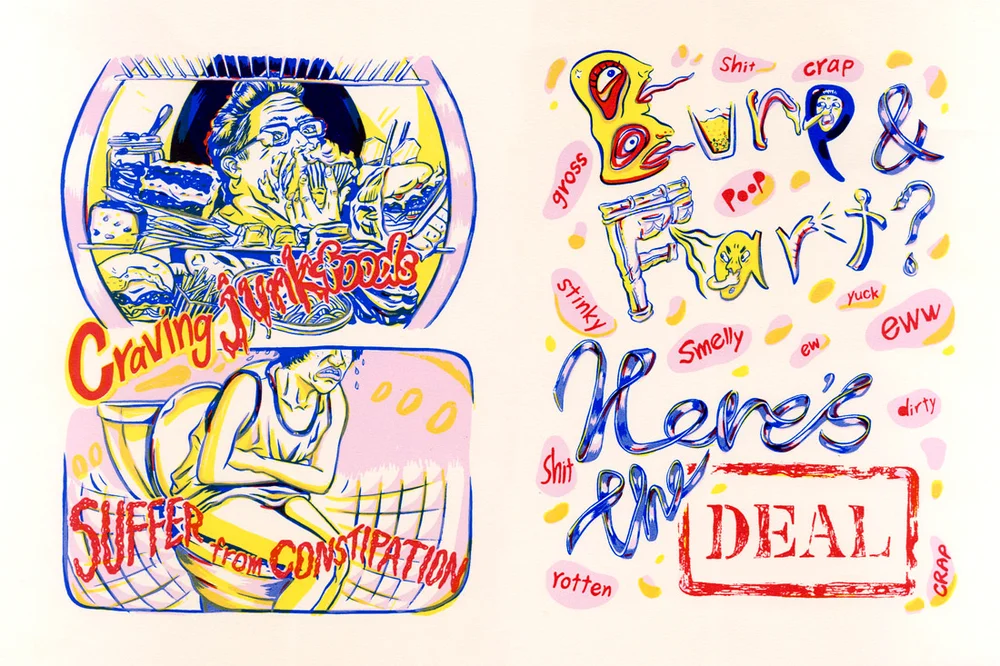 Craving Junkfoods
SUFFER from CONSTIPATION
Shit
crap
Burp &
gross
poop
Fart?
stinky
yuck
eww
Smelly
ew
Here's
dirty
Shit
the
DEAL
rotten
CRAP